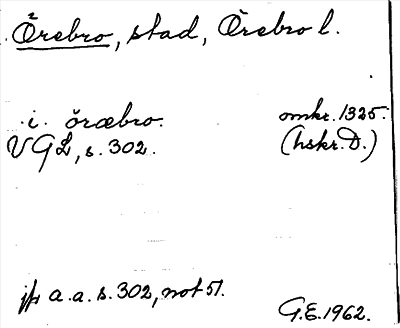 Örebro, stad, Örebro l.
i. öræbro. omkr. 1325.
VGL, s. 302. (hskr. D.)
jfr a.a. s. 302, not 51.
G.E. 1962.